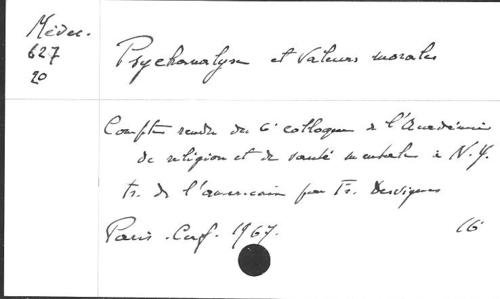 Médec.
627
20
Psychanalyse et valeurs morales
Compte rendu du 6e colloque de l'Académie
de religion et de santé mentale à N.Y.
tr. de l'américain par Fr. Desvignes
Paris. Cerf. 1967.
16